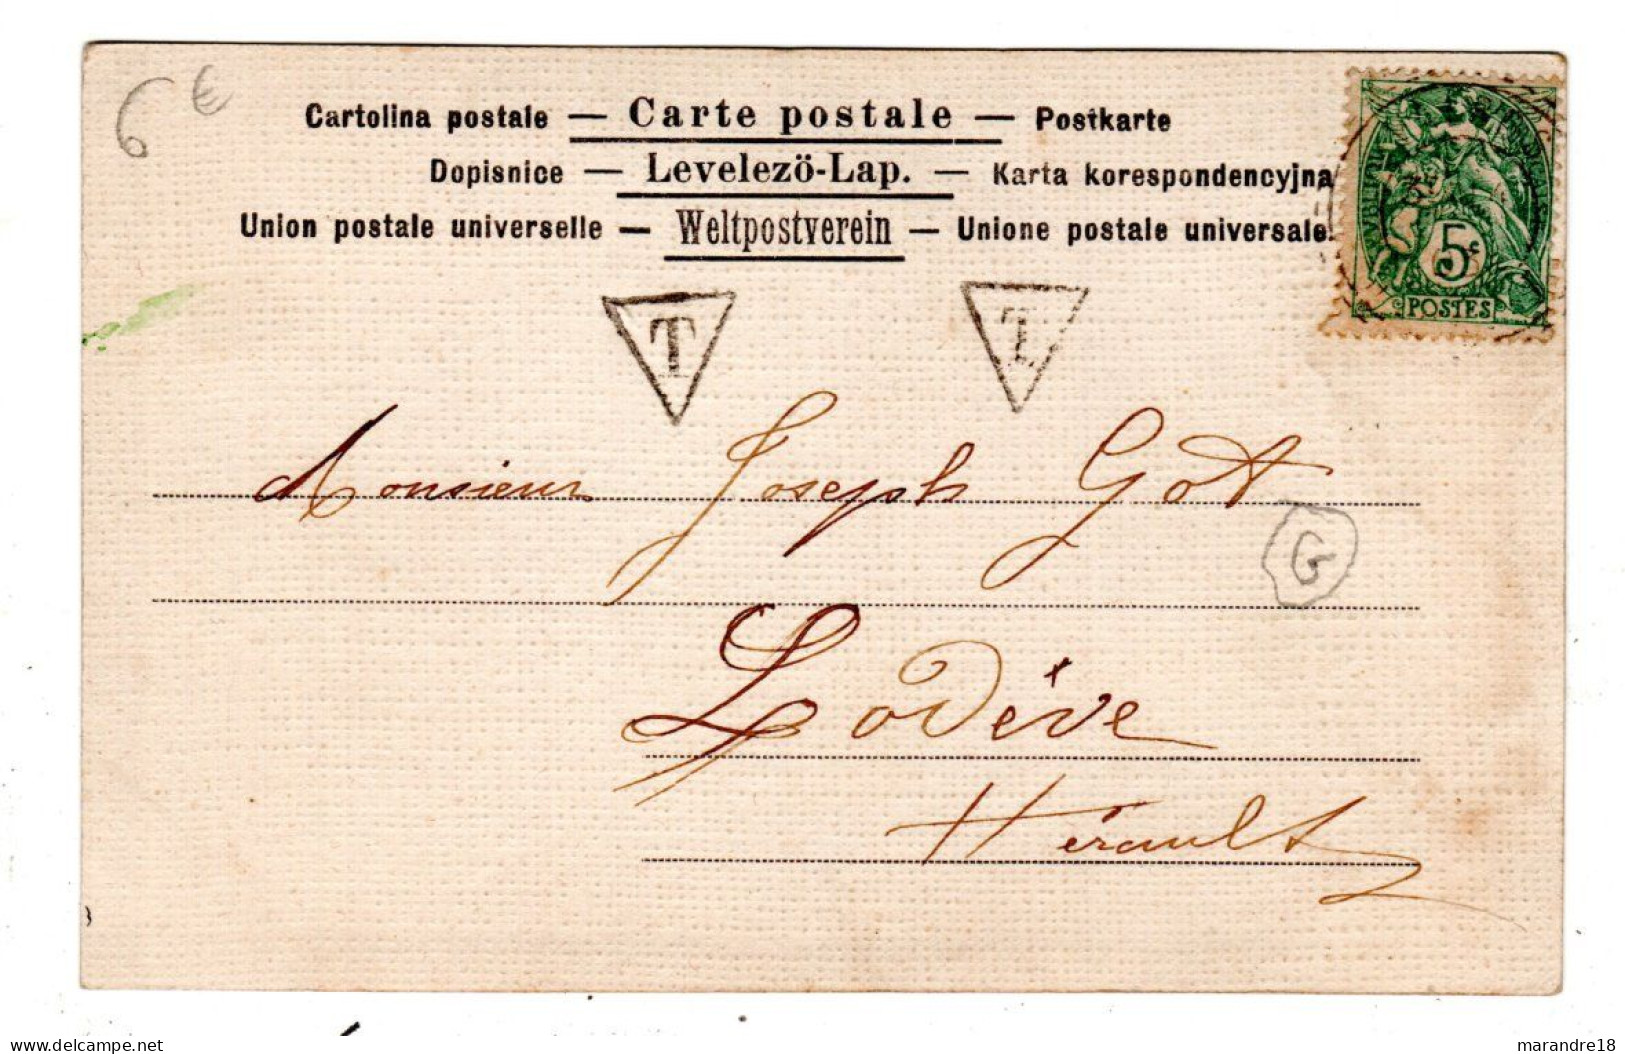 6 €
Cartolina postale — Carte postale — Postkarte
Dopisnice — Levelezö-Lap. — Karta korespondencyjna
Union postale universelle — Weltpostverein — Unione postale universale.
5c
POSTES
T T
Monsieur Joseph Got
G
Lodève
Hérault
www.delcampe.net
marandre18